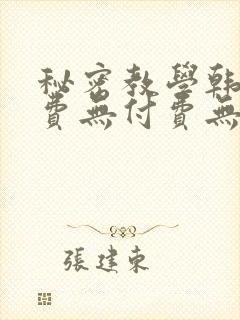 秘密教學韓
費無付費無
張建東